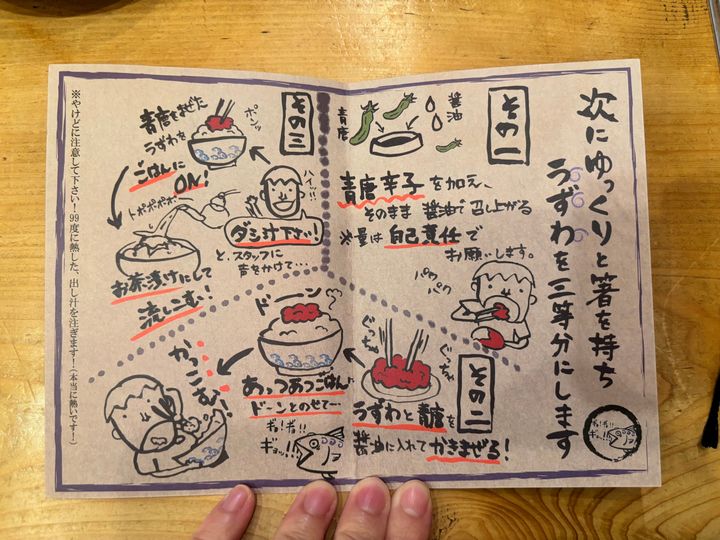 次にゆっくりと箸を持ち
うずわを三等分にします
その一
醤油
青唐
青唐辛子を加え、
そのまま醤油で召し上がる
※量は自己責任で
お願いします。
パク
パク
その二
ぐっちゃ
ぐっちゃ
うずわと青唐を
醤油に入れてかきまぜる!
ドーン
あっつあつごはんに
ドーンとのせてー
ギョ!ギョ!!
ギョッ!!
かっこむ!
その三
青唐をまぜた
うずわを
ポンッ
ごはんに
ON!
ハイッ!!
ダシ汁下さい!
と、スタッフに
声をかけて…
トポポポポ…
お茶漬けにして
流しこむ!
※やけどに注意して下さい!99度に熱した、出し汁を注ぎます!(本当に熱いです!)